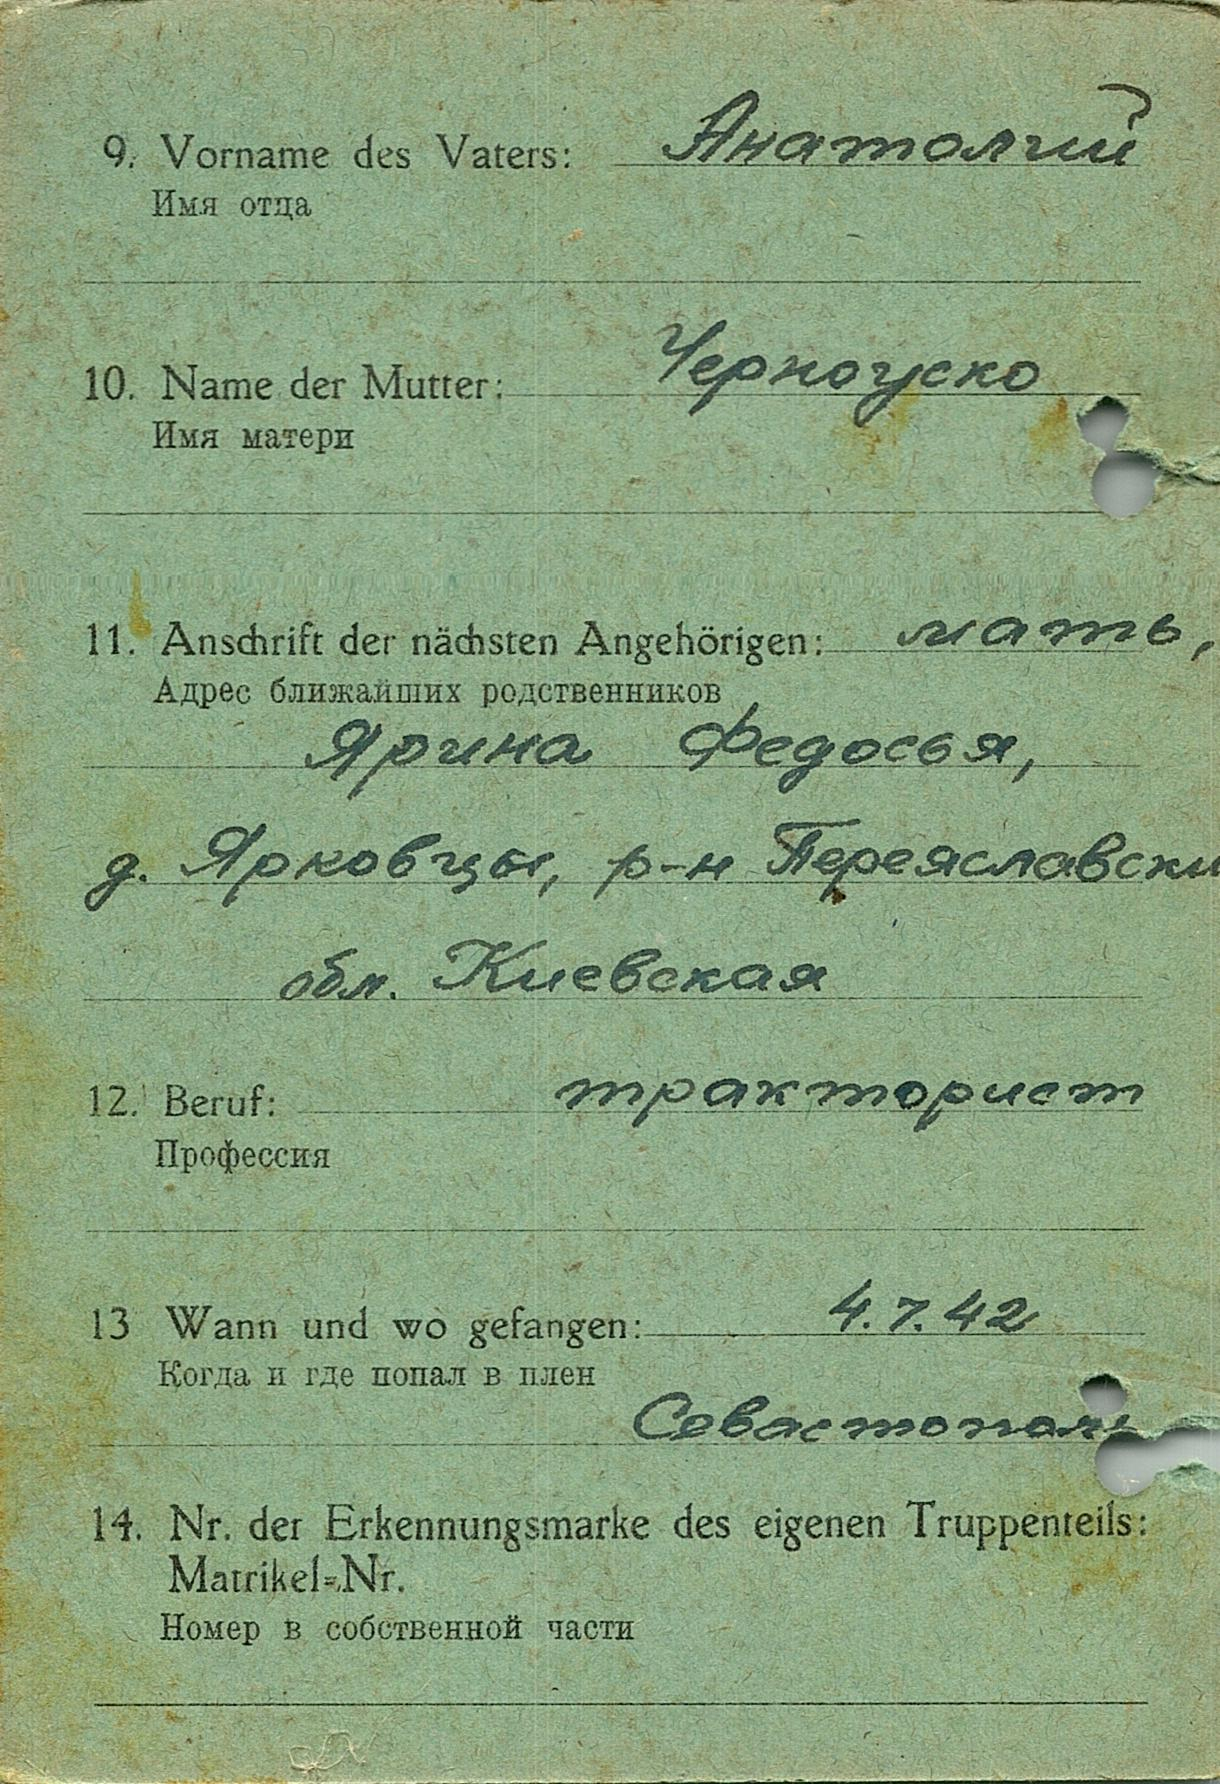 9. Vorname des Vaters: Анатолий
Имя отца
10. Name der Mutter: Черноуско
Имя матери
11. Anschrift der nächsten Angehörigen: мать,
Адрес ближайших родственников
Ярина Федосья,
д. Ярковцы, р-н Переяславски
обл. Киевская
12. Beruf: тракторист
Профессия
13 Wann und wo gefangen: 4.7.42
Когда и где попал в плен
Севастополь
14. Nr. der Erkennungsmarke des eigenen Truppenteils:
Matrikel=Nr.
Номер в собственной части